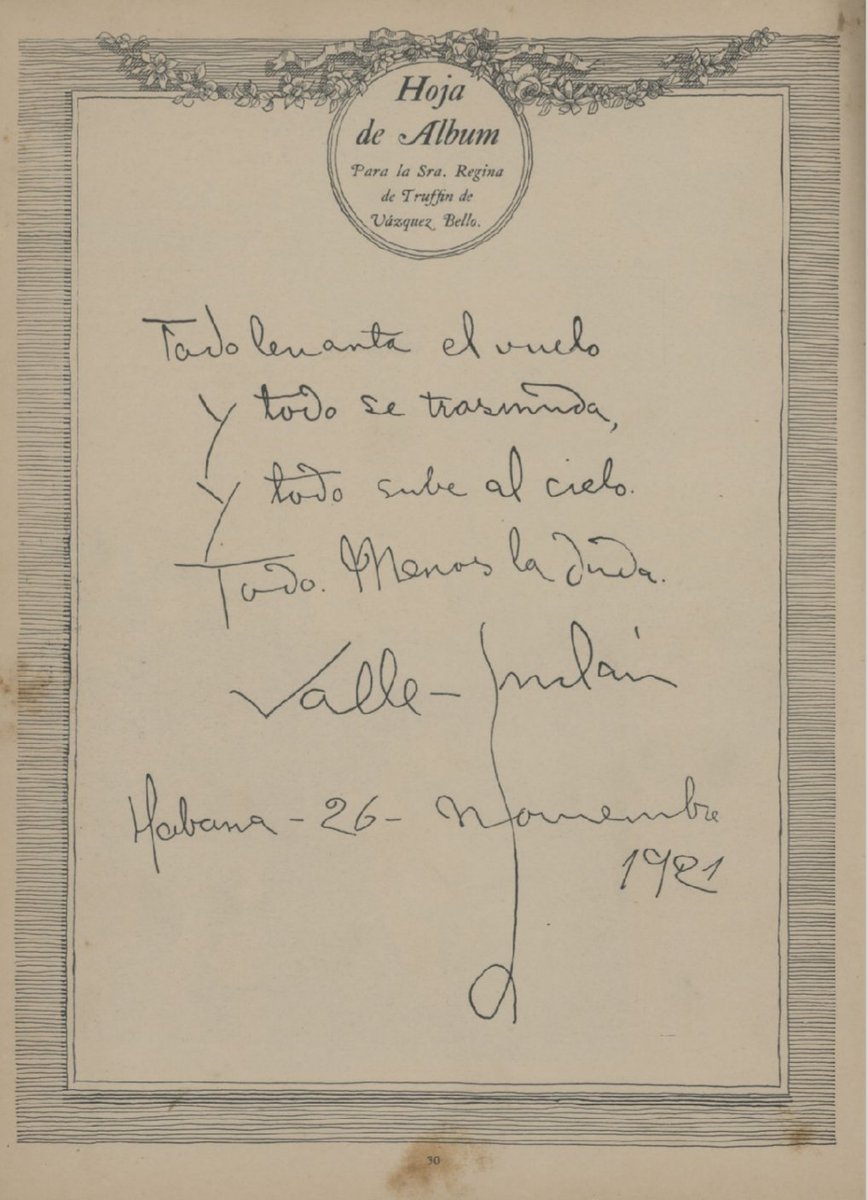 Hoja
de Album
Para la Sra. Regina
de Truffin de
Vázquez Bello.
Todo levanta el vuelo
y todo se trasmuda,
y todo sube al cielo.
Todo. Menos la duda.
Valle-Inclán
Habana - 26 - Noviembre
1921
30